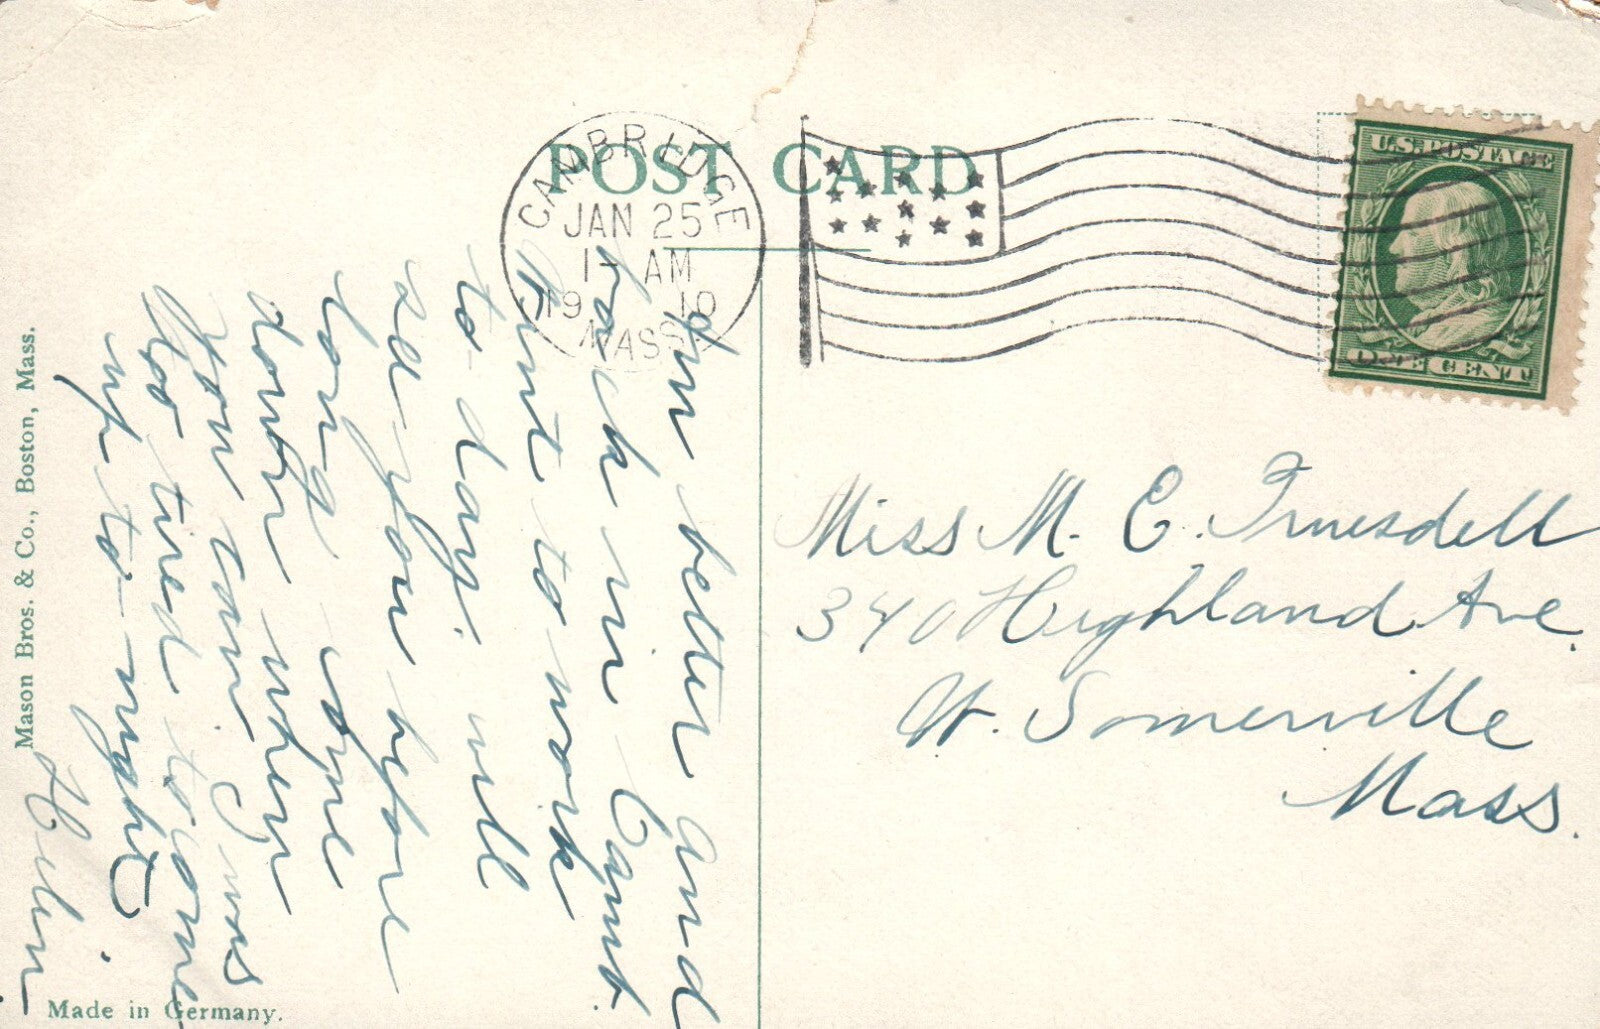 POST CARD
CAMBRIDGE
JAN 25
1- AM
19 10
MASS.
U.S. POSTAGE
ONE CENT
Am better and
back in Camb.
Went to work
to-day. will
see you before
long. come
down when
you can. I was
too tired to come
up to-night
Helen
Miss M. E. Truesdell
340 Highland Ave.
W. Somerville
Mass.
Mason Bros. & Co., Boston, Mass.
Made in Germany.